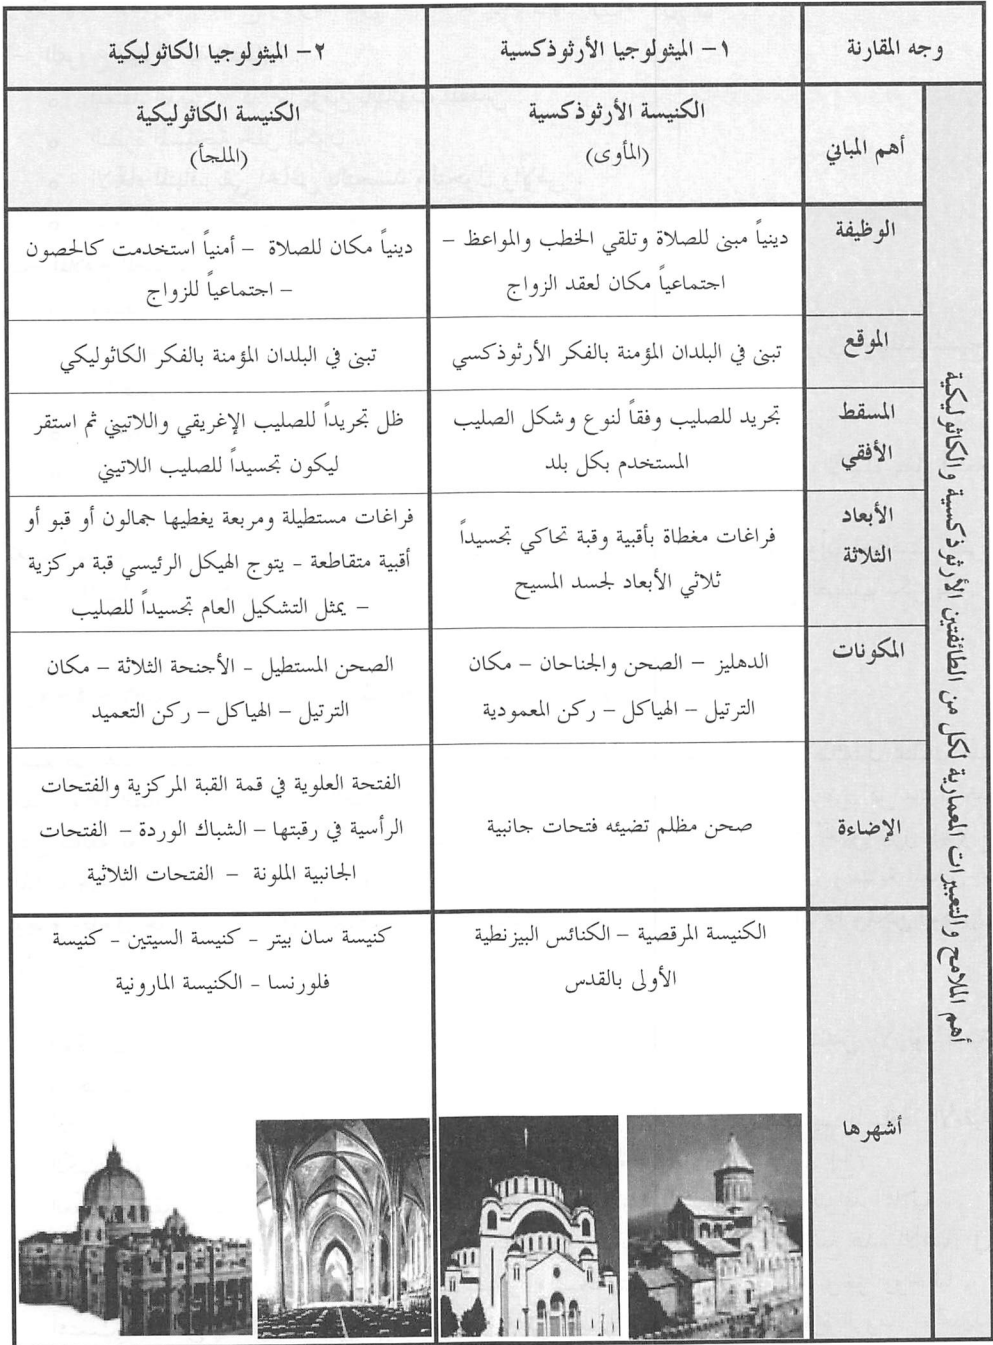 وجه المقارنة
١- الميثولوجيا الأرثوذكسية
٢- الميثولوجيا الكاثوليكية
أهم الملامح والتعبيرات المعمارية لكل من الطائفتين الأرثوذكسية والكاثوليكية
أهم المباني
الكنيسة الأرثوذكسية
(المأوى)
الكنيسة الكاثوليكية
(الملجأ)
الوظيفة
دينياً مبنى للصلاة وتلقي الخطب والمواعظ –
اجتماعياً مكان لعقد الزواج
دينياً مكان للصلاة – أمنياً استخدمت كالحصون
– اجتماعياً للزواج
الموقع
تبنى في البلدان المؤمنة بالفكر الأرثوذكسي
تبنى في البلدان المؤمنة بالفكر الكاثوليكي
المسقط
الأفقي
تجريد للصليب وفقاً لنوع وشكل الصليب
المستخدم بكل بلد
ظل تجريداً للصليب الإغريقي واللاتيني ثم استقر
ليكون تجسيداً للصليب اللاتيني
الأبعاد
الثلاثة
فراغات مغطاة بأقبية وقبة تحاكي تجسيداً
ثلاثي الأبعاد لجسد المسيح
فراغات مستطيلة ومربعة يغطيها جمالون أو قبو أو
أقبية متقاطعة - يتوج الهيكل الرئيسي قبة مركزية
– يمثل التشكيل العام تجسيداً للصليب
المكونات
الدهليز – الصحن والجناحان – مكان
الترتيل – الهياكل – ركن المعمودية
الصحن المستطيل - الأجنحة الثلاثة – مكان
الترتيل – الهياكل – ركن التعميد
الإضاءة
صحن مظلم تضيئه فتحات جانبية
الفتحة العلوية في قمة القبة المركزية والفتحات
الرأسية في رقبتها – الشباك الوردة – الفتحات
الجانبية الملونة – الفتحات الثلاثية
أشهرها
الكنيسة المرقصية – الكنائس البيزنطية
الأولى بالقدس
كنيسة سان بيتر - كنيسة السيتين - كنيسة
فلورنسا - الكنيسة المارونية